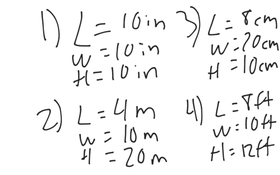 1) L = 10in
W = 10in
H = 10in
2) L = 4m
W = 10m
H = 20m
3) L = 8cm
W = 20cm
H = 10cm
4) L = 8ft
W = 10ft
H = 12ft